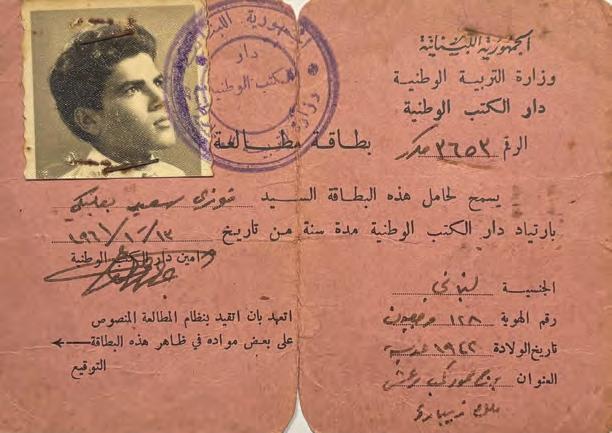 الجمهورية اللبنانية
وزارة التربية الوطنية
دار الكتب الوطنية
الرقم ٣٦٥٣ مكرر
بطاقة مطالعة
يسمح لحامل هذه البطاقة السيد فوزي سعيد بعلبكي
بارتياد دار الكتب الوطنية مدة سنة من تاريخ ١٣/١٠/١٩٦١
امين دار الكتب الوطنية
اتعهد بان اتقيد بنظام المطالعة المنصوص
على بعض مواده في ظاهر هذه البطاقة
التوقيع
الجنسية لبناني
رقم الهوية ١٢٨
تاريخ الولادة ١٩٤٢
العنوان برج حمود
الجمهورية
دار
الكتب الوطنية
وزارة